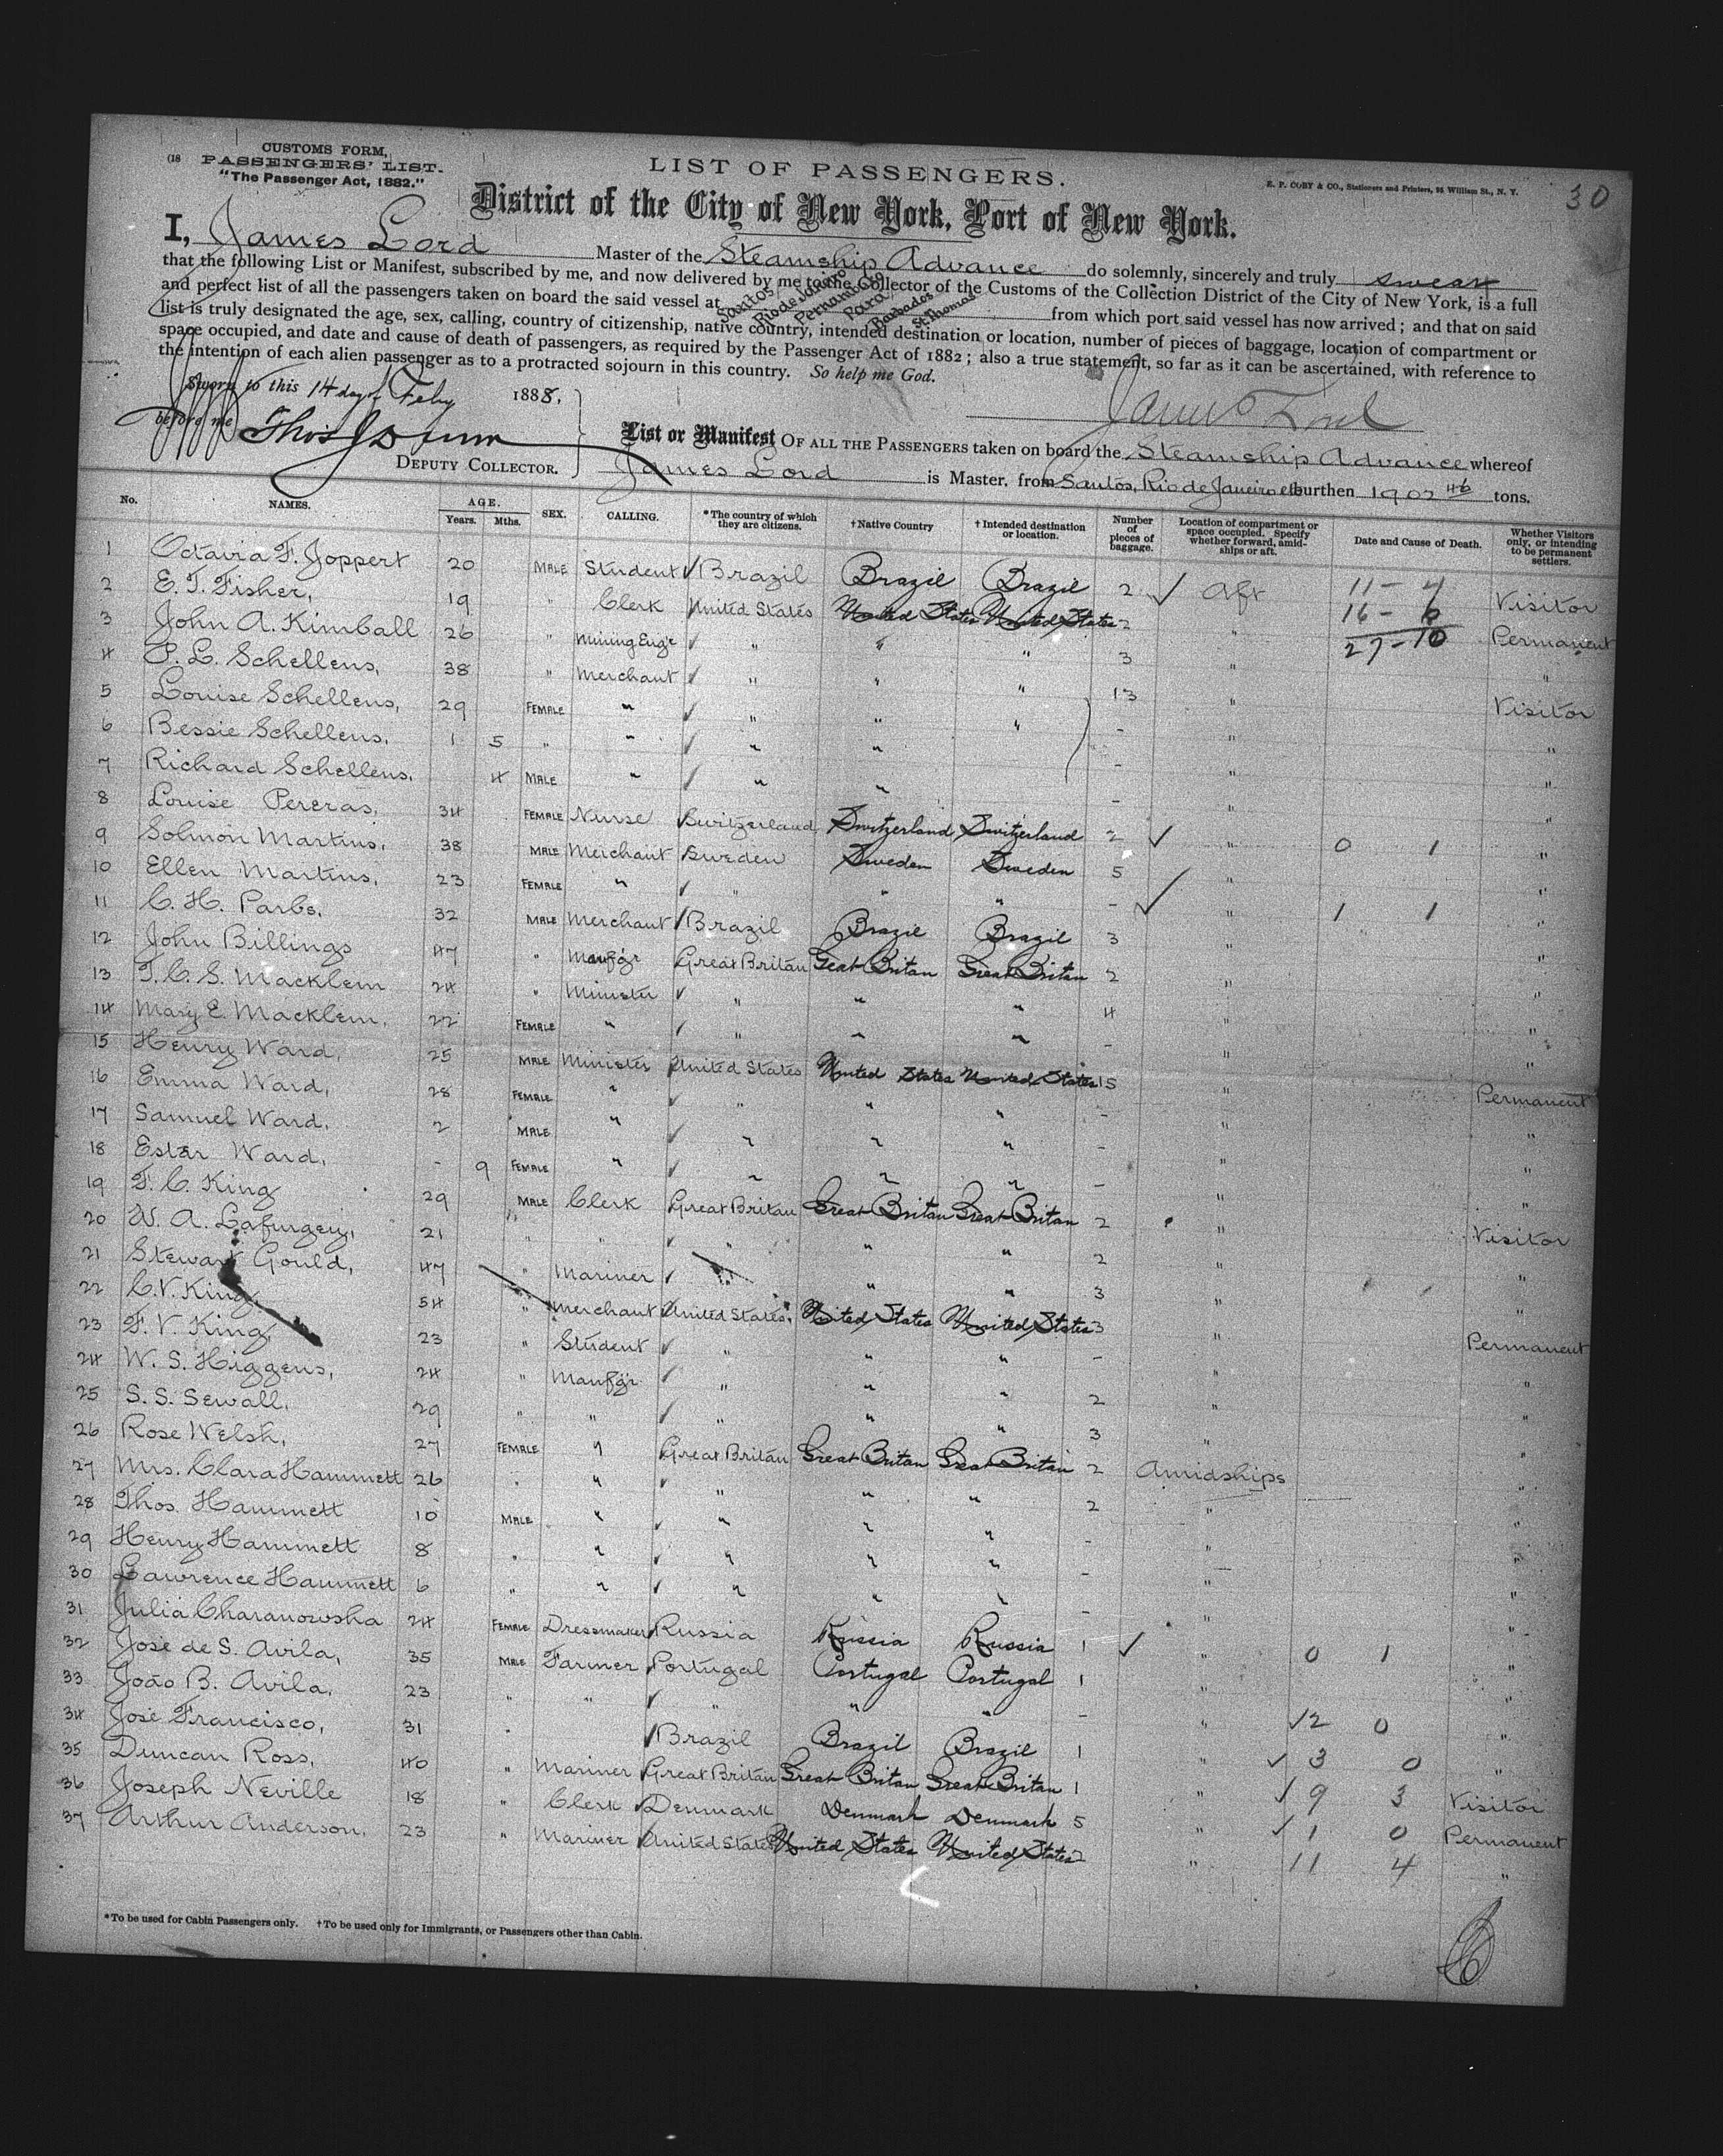 30
(18
CUSTOMS FORM,
PASSENGERS' LIST.
"The Passenger Act, 1882."
LIST OF PASSENGERS.
E. P. COBY & CO., Stationers and Printers, 95 William St., N. Y.
District of the City of New York, Port of New York.
I, James Lord Master of the Steamship Advance do solemnly, sincerely and truly swear
that the following List or Manifest, subscribed by me, and now delivered by me to the Collector of the Customs of the Collection District of the City of New York, is a full
and perfect list of all the passengers taken on board the said vessel at Santos Rio de Janeiro Pernambuco Para Barbados St Thomas from which port said vessel has now arrived; and that on said
list is truly designated the age, sex, calling, country of citizenship, native country, intended destination or location, number of pieces of baggage, location of compartment or
space occupied, and date and cause of death of passengers, as required by the Passenger Act of 1882; also a true statement, so far as it can be ascertained, with reference to
the intention of each alien passenger as to a protracted sojourn in this country. So help me God.
Sworn to this 14 day of Feby 1888,
James Lord
before me
DEPUTY COLLECTOR.
List or Manifest OF ALL THE PASSENGERS taken on board the Steamship Advance whereof
James Lord is Master, from Santos, Rio de Janeiro etc burthen 1902 46 tons.
No. NAMES. AGE. Years. Mths. SEX. CALLING. *The country of which they are citizens. †Native Country †Intended destination or location. Number of pieces of baggage. Location of compartment or space occupied. Specify whether forward, amidships or aft. Date and Cause of Death. Whether Visitors only, or intending to be permanent settlers.
1 Octavia F. Joppert 20 MALE Student Brazil Brazil Brazil 2 Aft 11 - 4 Visitor
2 E. T. Fisher, 19 " Clerk United States United States United States 2 " 16 - 6 Permanent
3 John A. Kimball 26 " Mining Engr " " " 3 " 27 - 10 "
4 F. L. Schellens, 38 " Merchant " " " 13 " Visitor
5 Louise Schellens, 29 FEMALE " " " " - " "
6 Bessie Schellens, 1 5 " " " " - " "
7 Richard Schellens, 4 MALE " " " - " "
8 Louise Pereras, 34 FEMALE Nurse Switzerland Switzerland Switzerland 2 " 0 1 "
9 Solmon Martins, 38 MALE Merchant Sweden Sweden Sweden 5 " "
10 Ellen Martins, 23 FEMALE " " " " - " 1 1 "
11 C. H. Parbs, 32 MALE Merchant Brazil Brazil Brazil 3 " "
12 John Billings 47 " Manfgr Great Britan Great Britan Great Britan 2 " "
13 T. C. S. Macklem 24 " Minister " " " 4 " "
14 Mary E. Macklem, 22 FEMALE " " " " - " "
15 Henry Ward, 25 MALE Minister United States United States United States 15 " Permanent
16 Emma Ward, 28 FEMALE " " " " - " "
17 Samuel Ward, 2 MALE " " " " - " "
18 Ester Ward, - 9 FEMALE " " " " - " "
19 F. C. King 29 MALE Clerk Great Britan Great Britan Great Britan 2 " Visitor
20 W. A. Lafurgey, 21 " " " " " 2 " "
21 Stewart Gould, 47 " Mariner " " " 3 " "
22 C. V. King, 54 " Merchant United States United States United States 3 " Permanent
23 F. V. King, 23 " Student " " " - " "
24 W. S. Higgens, 24 " Manfgr. " " " 2 " "
25 S. S. Sewall, 29 " " " " " 3 " "
26 Rose Welsh, 27 FEMALE " Great Britan Great Britan Great Britan 2 Amidships "
27 Mrs. Clara Hammett 26 " " " " " 2 " "
28 Thos. Hammett 10 MALE " " " " - " "
29 Henry Hammett 8 " " " " " - " "
30 Lawrence Hammett 6 " " " " " - " "
31 Julia Charanowsha 24 FEMALE Dressmaker Russia Russia Russia 1 " 0 1 "
32 José de S. Avila, 35 MALE Farmer Portugal Portugal Portugal 1 " "
33 João B. Avila, 23 " " " " " - " 2 0 "
34 José Francisco, 31 " Brazil Brazil Brazil 1 " 3 0 "
35 Duncan Ross, 40 " Mariner Great Britan Great Britan Great Britan 1 " 9 3 Visitor
36 Joseph Neville 18 " Clerk Denmark Denmark Denmark 5 " 1 0 Permanent
37 Arthur Anderson, 23 " Mariner United States United States United States 2 " 11 4 "
*To be used for Cabin Passengers only. †To be used only for Immigrants, or Passengers other than Cabin.